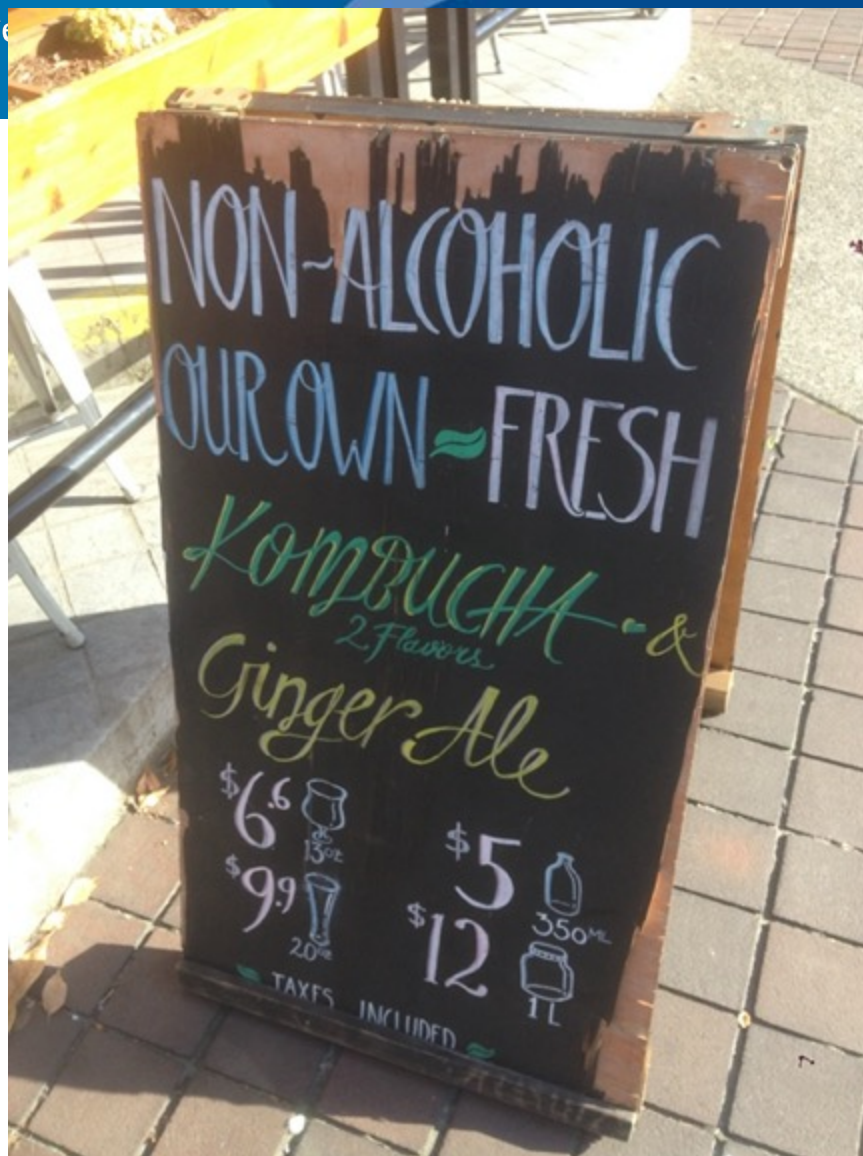 NON-ALCOHOLIC
OUR OWN FRESH
KOMBUCHA &
2 Flavors
Ginger Ale
$6.6 13oz
$9.9 20oz
$5 350ML
$12 1L
TAXES INCLUDED